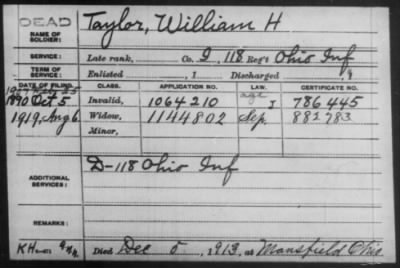 DEAD Taylor, William H
NAME OF SOLDIER:
SERVICE: Late rank, Co. I, 118 Reg't Ohio Inf
TERM OF SERVICE: Enlisted , 1 Discharged , 9
DATE OF FILING. CLASS. APPLICATION NO. LAW. CERTIFICATE NO.
1890 Oct. 5 Invalid, 1064210 786445
1919, Aug 6 Widow, 1144802 Sep. 882783
Minor,
D-118 Ohio Inf
ADDITIONAL SERVICES:
REMARKS:
Died Dec 5, 1913, at Mansfield Ohio